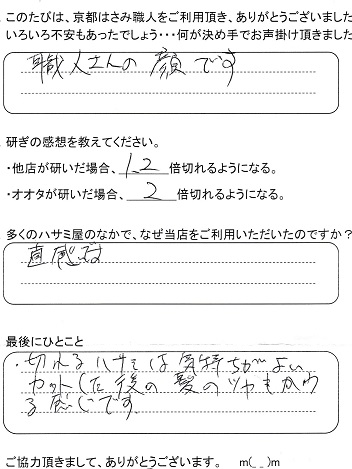 このたびは、京都はさみ職人をご利用頂き、ありがとうございました
いろいろ不安もあったでしょう・・・何が決め手でお声掛け頂きました
職人さんの顔です
研ぎの感想を教えてください。
・他店が研いだ場合、1.2 倍切れるようになる。
・オオタが研いだ場合、2 倍切れるようになる。
多くのハサミ屋のなかで、なぜ当店をご利用いただいたのですか？
直感です
最後にひとこと
・切れるハサミは気持ちがよい
カットした後の髪のツヤもかわ
る感じです.
ご協力頂きまして、ありがとうございます。 m(_ _)m